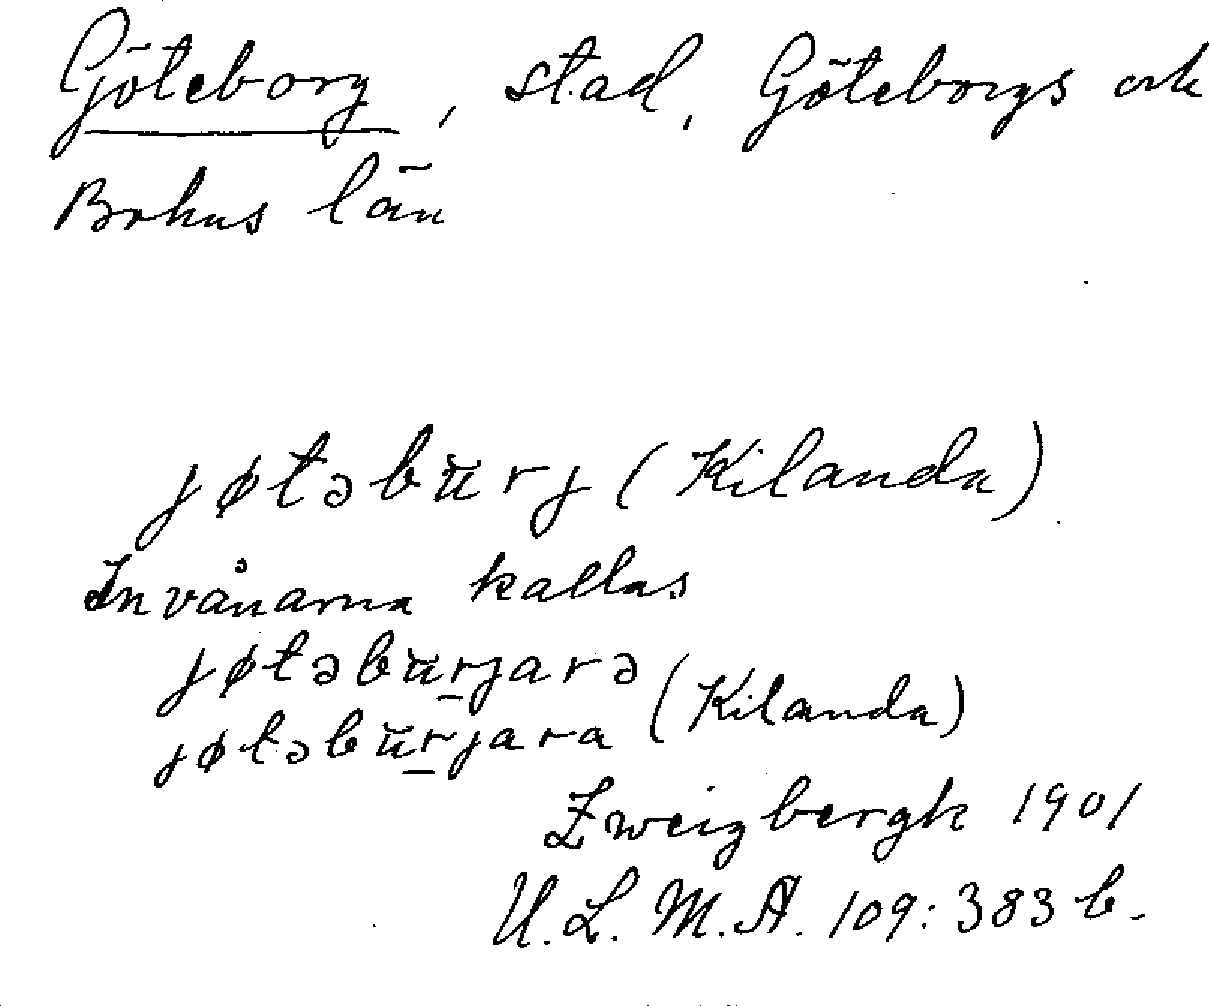 Göteborg, stad, Göteborgs och
Bohus län
jøtəbŭrj (Kilanda)
Invånarna kallas
jøtəbŭrjarə
jøtəbŭrjara (Kilanda)
Zweigbergk 1901
U.L.M.A. 109:383 b.